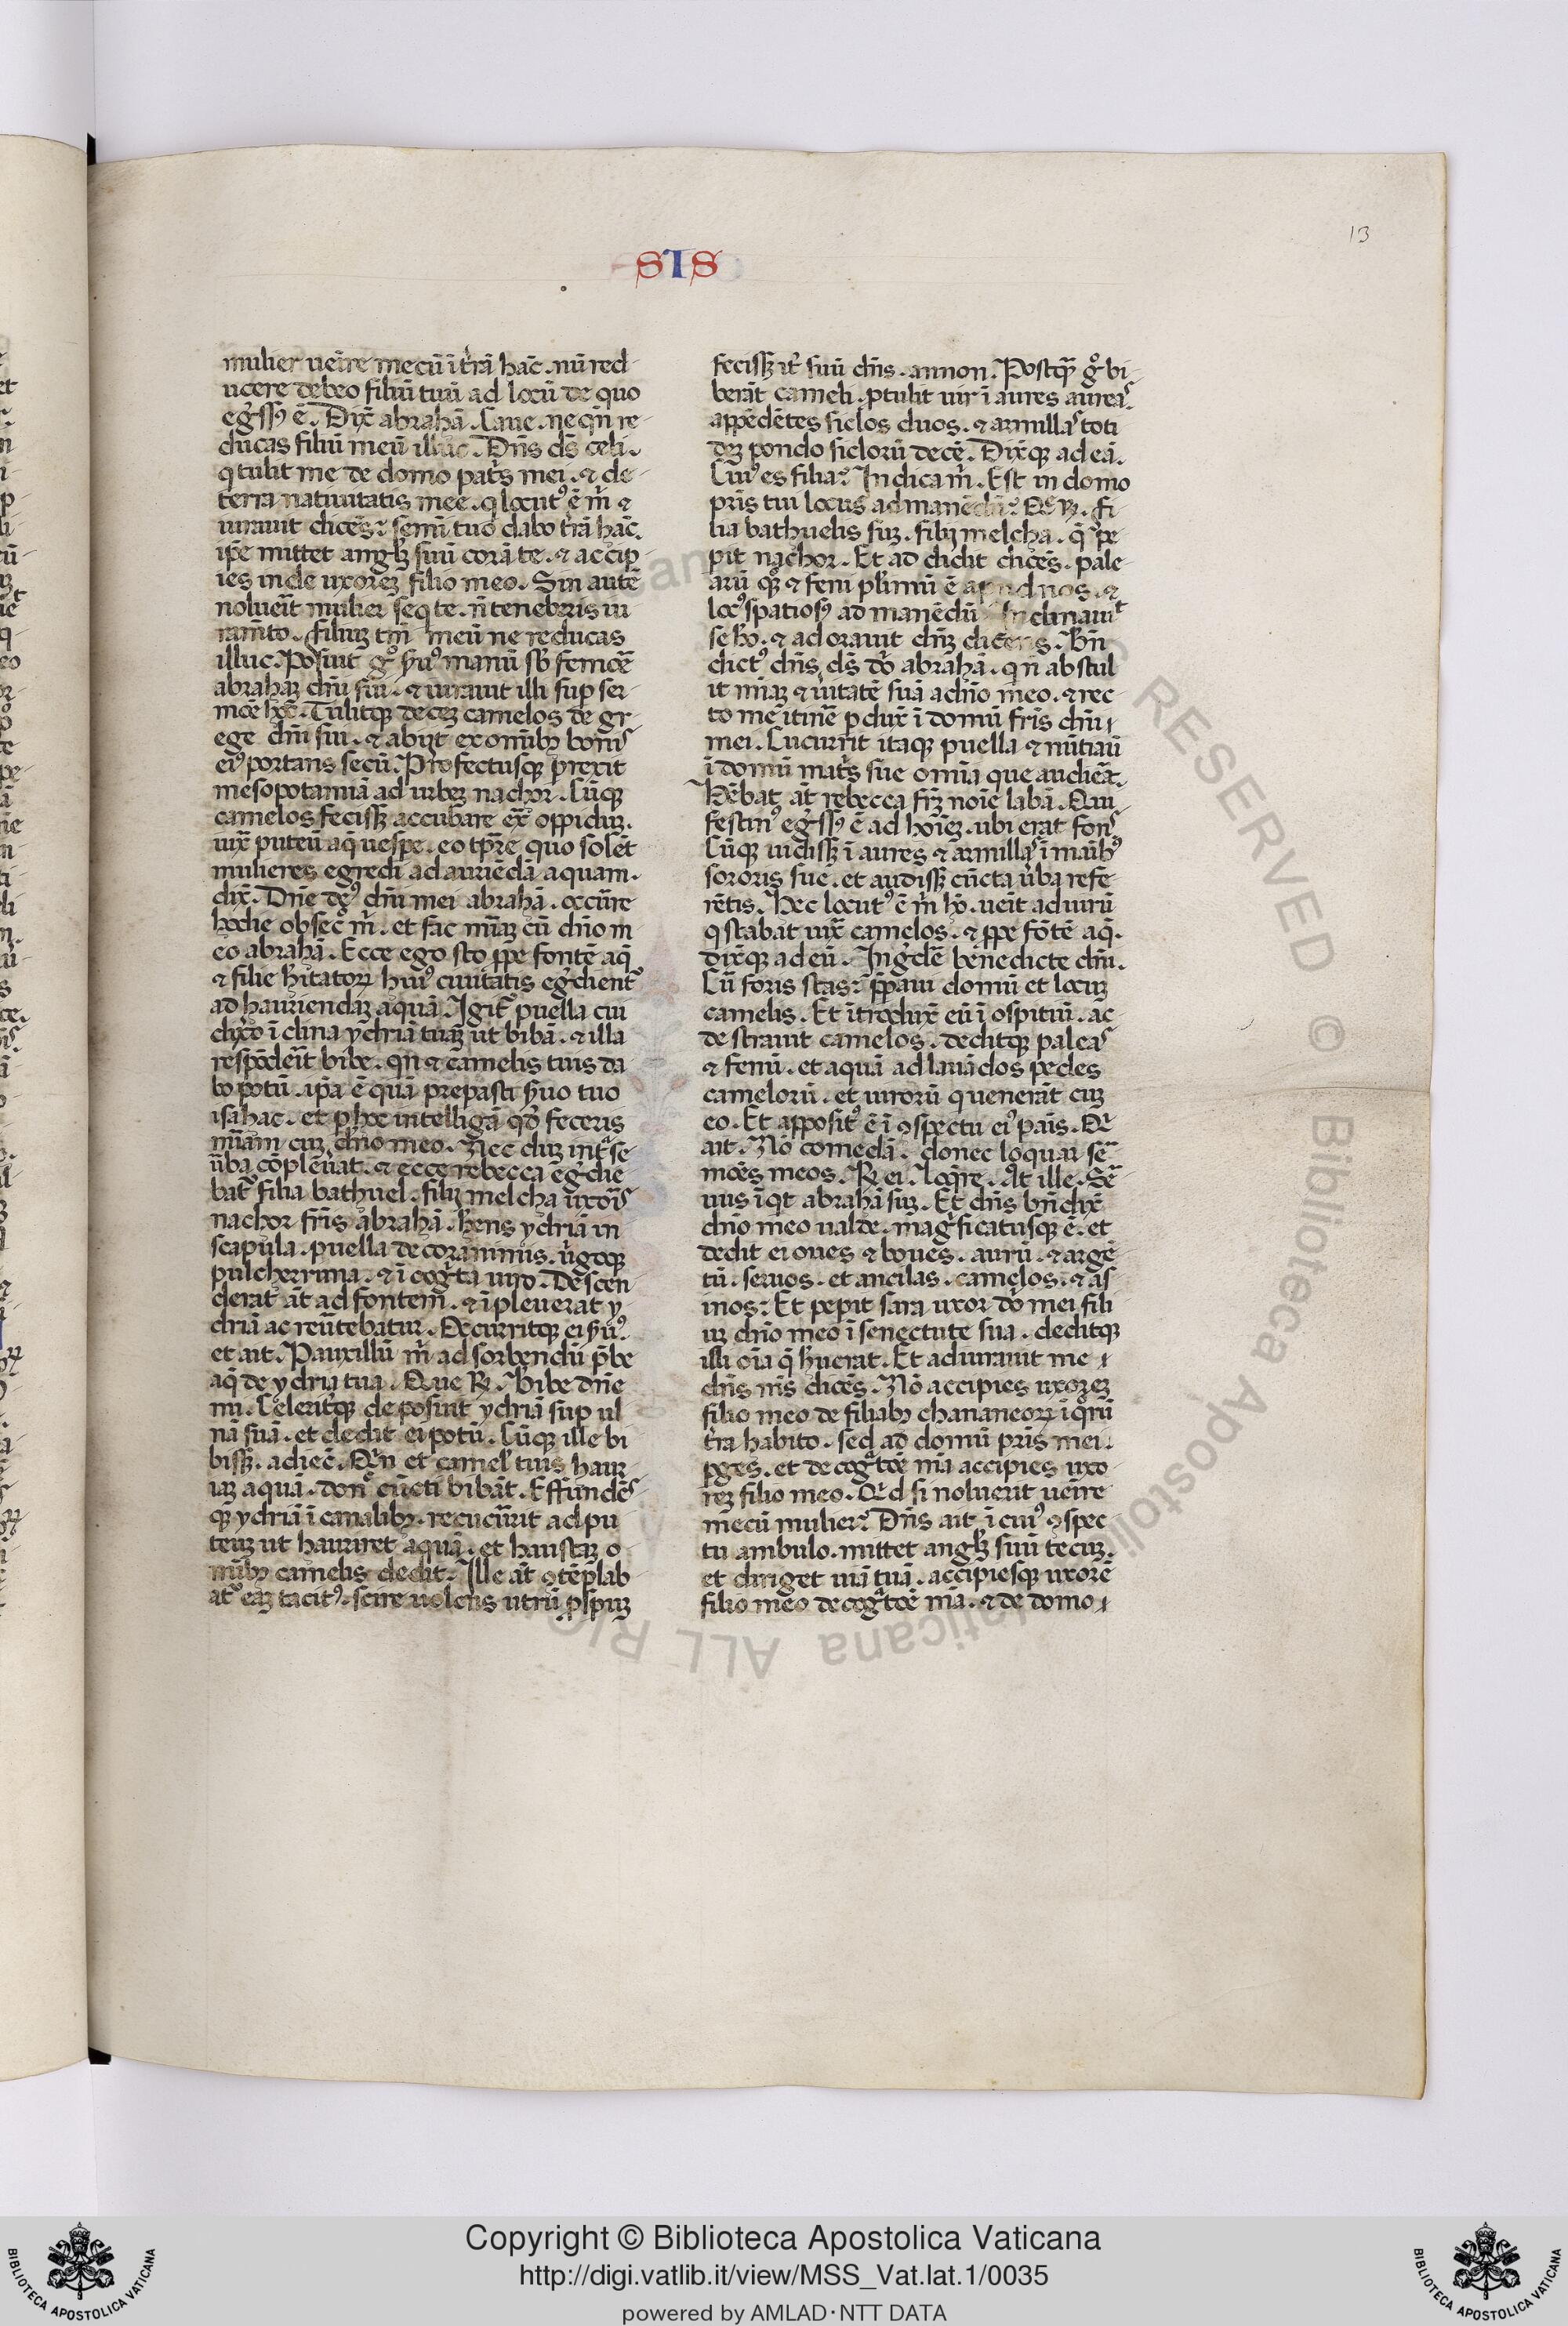 13
SIS
mulier ueīre mecū ī t̄rā hāc. nū red-
ucere debeo filiū tuū ad locū de quo
egr̄ssꝰ ē. Dix̄ abrahā. Caue. neqn̄ re-
ducas filiū meū illuc. Dn̄s ds̄ celi.
q tulit me de domo pat̄s mei. ⁊ de-
terra natiuitatis mee. q locutꝰ ē m̄ ⁊
iurauit dicēs: semī tuo dabo t̄rā hāc.
ip̄e mittet angłꝫ suū corā te. ⁊ accip-
ies inde uxoreꝫ filio meo. Sin autē
nolueīt mulier seq te. n̄ teneberis iu
ram̄to. filiuꝫ tm̄ meū ne reducas
illuc. Posuit gͦ s̄uꝰ manū sb̄ femōē
abrahaꝫ dn̄i sui. ⁊ iurauit illi sup ser-
mōe hōc. Tulitqꝫ deceꝫ camelos de gr-
ege dn̄i sui. ⁊ abijt ex omībꝫ bonīs
eiꝰ portans secū. Profectusqꝫ prexit
mesopotamiā ad urbeꝫ nachor. Cūqꝫ
camelos fecissꝫ accubare ex̄ oppiduꝫ.
iux̄ puteū aq̄ uesp̄e. eo tp̄re quo solēt
mulieres egredi ad auriēdā aquam.
dix̄. Dn̄e dꝰs dn̄i mei abrahā. occūre
hodie obsec̄ m̄. et fac m̄iaꝫ cū dn̄o m
eo abrahā. Ecce ego sto ꝓpe fontē aq̄
⁊ filie h̄itatoꝝ huiꝰ ciuitatis egr̄dient᷑
ad hauriendaꝫ aquā. Igit᷑ puella cui
dixo ī clina ydriā tuaꝫ ut bibā. ⁊ illa
respōdeīt bibe. qn̄ ⁊ camelis tuis da
bo potū. ip̄a ē quā prepasti s̄uo tuo
isahac. et ꝑ hoc intelligā qd̄ feceris
m̄iam cuꝫ dn̄o meo. Nec duꝫ int̄ se
ūba cōplēuat. ⁊ ecce rebecca egr̄die
bat᷑ filia bathuel. filij melcha uxorīs
nachor fr̄is abrahā. hēns ydriā in
scapula. puella decora nimis. uīgoqꝫ
pulcherrima. ⁊ ī cogīta uiro. Descen
derat at̄ ad fontem. ⁊ īpleuerat y-
driā ac reūtebatur. Occurritqꝫ ei s̄uꝰ.
et ait. Pauxillū m̄ ad sorbendū p̄be
aq̄ de ydria tua. Que ꝶ. Bibe dn̄e
mi. Celeritqꝫ deposuit ydriā sup ul
nā suā. et dedit ei potū. Cūqꝫ ille bi
bissꝫ. adiec̄. Qn̄ et camel̄ tuis haur-
iaꝫ aquā. donͨ cūcti bibāt. Effundēs
qꝫ ydriā ī canalibꝫ. recucūrit ad pu
teuꝫ ut hauriret aquā. et haustaꝫ o-
mībꝫ camelis dedit. Ille at̄ ꝯtēplab
at᷑ eaꝫ tacitꝰ. scire uolens utrū ꝓspuꝫ
fecissꝫ it᷑ suū dn̄s. annon. Postq̄ gͦ bi-
berāt cameli. ꝓtulit uir ī aures aureas.
appēdētes siclos duos. ⁊ armillas toti
deꝫ pondo siclorū decē. Dixitqꝫ ad eā.
Cuiꝰ es filia? Indica m̄. Est in domo
pr̄is tui locus ad manēdū? Q̄ ꝶ. fi-
lia bathuelis suꝫ. filij melcha. q̄ pe-
pit nachor. Et ad didit dicēs. pale-
arū qꝫ ⁊ feni pl̄imū ē apud nos. ⁊
locꝰ spatiosꝰ ad manēdū. Inclinauit
se hō. ⁊ ad orauit dn̄ꝫ dicens. Bn̄
dictꝰ dn̄s ds̄ dō abrahā. q n̄ abstul
it m̄iaꝫ ⁊ uītatē suā a dn̄o meo. ⁊ rec-
to me itin̄e ꝑdux̄ ī domū fr̄is dn̄i
mei. Cucurrit itaqꝫ puella ⁊ nūtiau
ī domū mat̄s sue omīa que audiēat.
Hēbat at̄ rebecca fr̄ꝫ noīe labā. Qui
festinꝰ egr̄ssꝰ ē ad hoīeꝫ. ubi erat fons
Cūqꝫ uidissꝫ ī aures ⁊ armillas ī maībꝰ
sororis sue. et audissꝫ cūcta ūba refe-
rētis. Hec locutꝰ ē m̄ hō. ueīt ad uirū
q stabat iux̄ camelos. ⁊ ꝓpe fōtē aq̄.
dixitqꝫ ad eū. Ingr̄dē benedicte dn̄i.
Cū foris stas? ꝓpaui domū et locuꝫ
camelis. Et ītrodux̄ eū ī ospitiū. ac
de strauit camelos. deditqꝫ paleas
⁊ fenū. et aquā ad lauādos pedes
camelorū. et uirorū q uenerāt cuꝫ
eo. Et appositꝰ ē ī ꝯspectu eiꝰ pais. Q̄
ait. Nō comedā. donec loquar se-
mōēs meos. ꝶ ei. Loq̄re. At ille. Se-
uus īqt abrahā suꝫ. Et dn̄s bn̄dix̄
dn̄o meo ualde. magīficatusqꝫ ē. et
dedit ei oues ⁊ boues. aurū. ⁊ argē-
tū. seruos. et ancilas. camelos. ⁊ as
inos: Et pepit sara uxor dō mei fili
uꝫ dn̄o meo ī senectute sua. deditqꝫ
illi oīa q̄ h̄uerat. Et adiurauit me
dn̄s m̄s dicēs. Nō accipies uxoreꝫ
filio meo de filiabꝫ chananeoꝝ ī q̄rū
t̄ra habito. sed ad domū pr̄is mei
ꝑges. et de cogītōē mīa accipies uxo
reꝫ filio meo. Q̄d si noluerit ueīre
mecū mulier? Dn̄s ait ī cuiꝰ ꝯspec-
tu ambulo. mittet angłꝫ suū tecuꝫ.
et diriget uiā tuā. accipiesqꝫ uxorē
filio meo de cogītōē mīa. ⁊ de domo
Copyright © Biblioteca Apostolica Vaticana
http://digi.vatlib.it/view/MSS_Vat.lat.1/0035
powered by AMLAD·NTT DATA
BIBLIOTECA APOSTOLICA VATICANA
BIBLIOTECA APOSTOLICA VATICANA